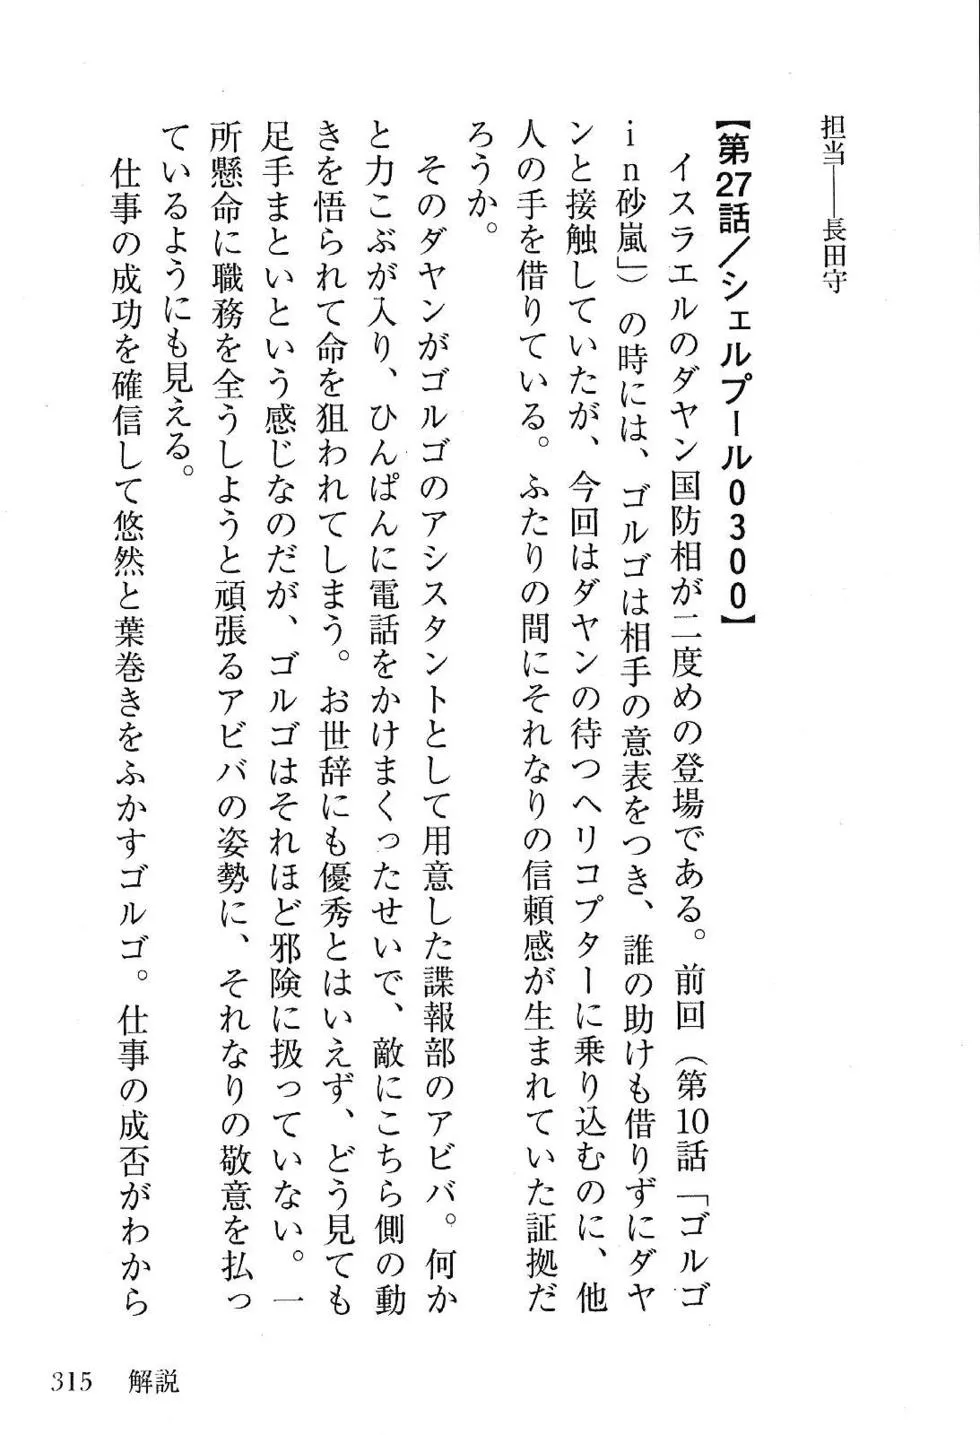 担当――長田守
【第27話／シェルプール0300】
イスラエルのダヤン国防相が二度めの登場である。前回（第10話「ゴルゴ
in砂嵐」）の時には、ゴルゴは相手の意表をつき、誰の助けも借りずにダヤ
ンと接触していたが、今回はダヤンの待つヘリコプターに乗り込むのに、他
人の手を借りている。ふたりの間にそれなりの信頼感が生まれていた証拠だ
ろうか。
そのダヤンがゴルゴのアシスタントとして用意した諜報部のアビバ。何か
と力こぶが入り、ひんぱんに電話をかけまくったせいで、敵にこちら側の動
きを悟られて命を狙われてしまう。お世辞にも優秀とはいえず、どう見ても
足手まといという感じなのだが、ゴルゴはそれほど邪険に扱っていない。一
所懸命に職務を全うしようと頑張るアビバの姿勢に、それなりの敬意を払っ
ているようにも見える。
仕事の成功を確信して悠然と葉巻きをふかすゴルゴ。仕事の成否がわから
315　解説